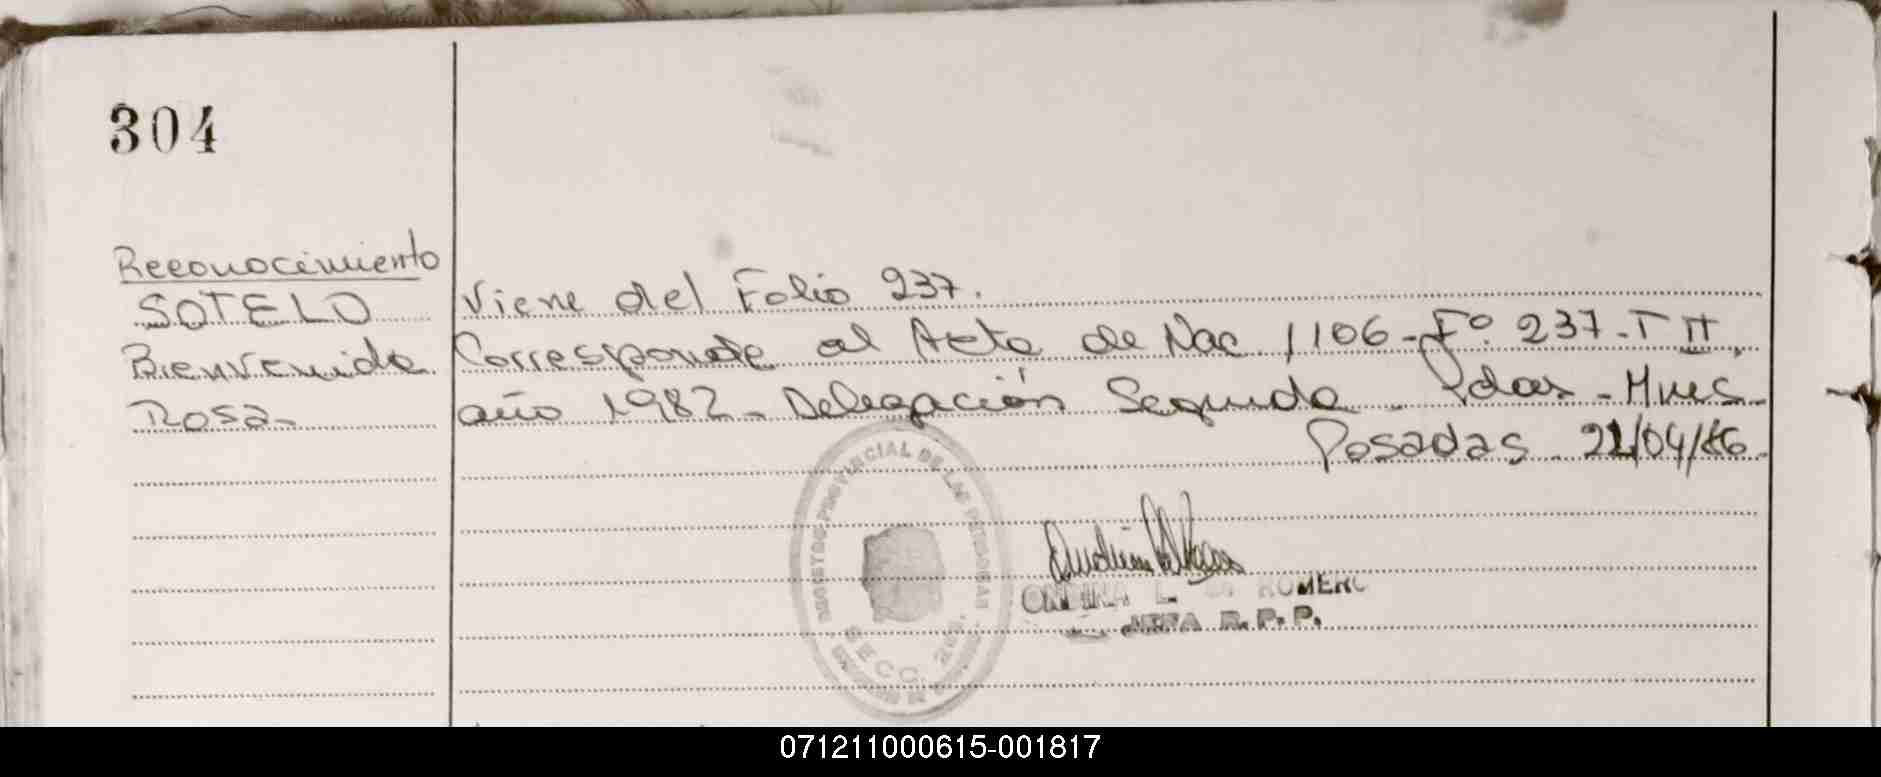 304
Reconocimiento
SOTELO
Bienvenida
Rosa-
Viene del Folio 237.
Corresponde al Acta de Nac 1106-Fº 237-T II.
año 1982- Delegación Segunda - Pdas - Mnes-
Posadas - 21/04/86-
REGISTRO PROVINCIAL DE LAS PERSONAS
SECC. 2da.
L. DE ROMERO
JEFA R.P.P.
071211000615-001817